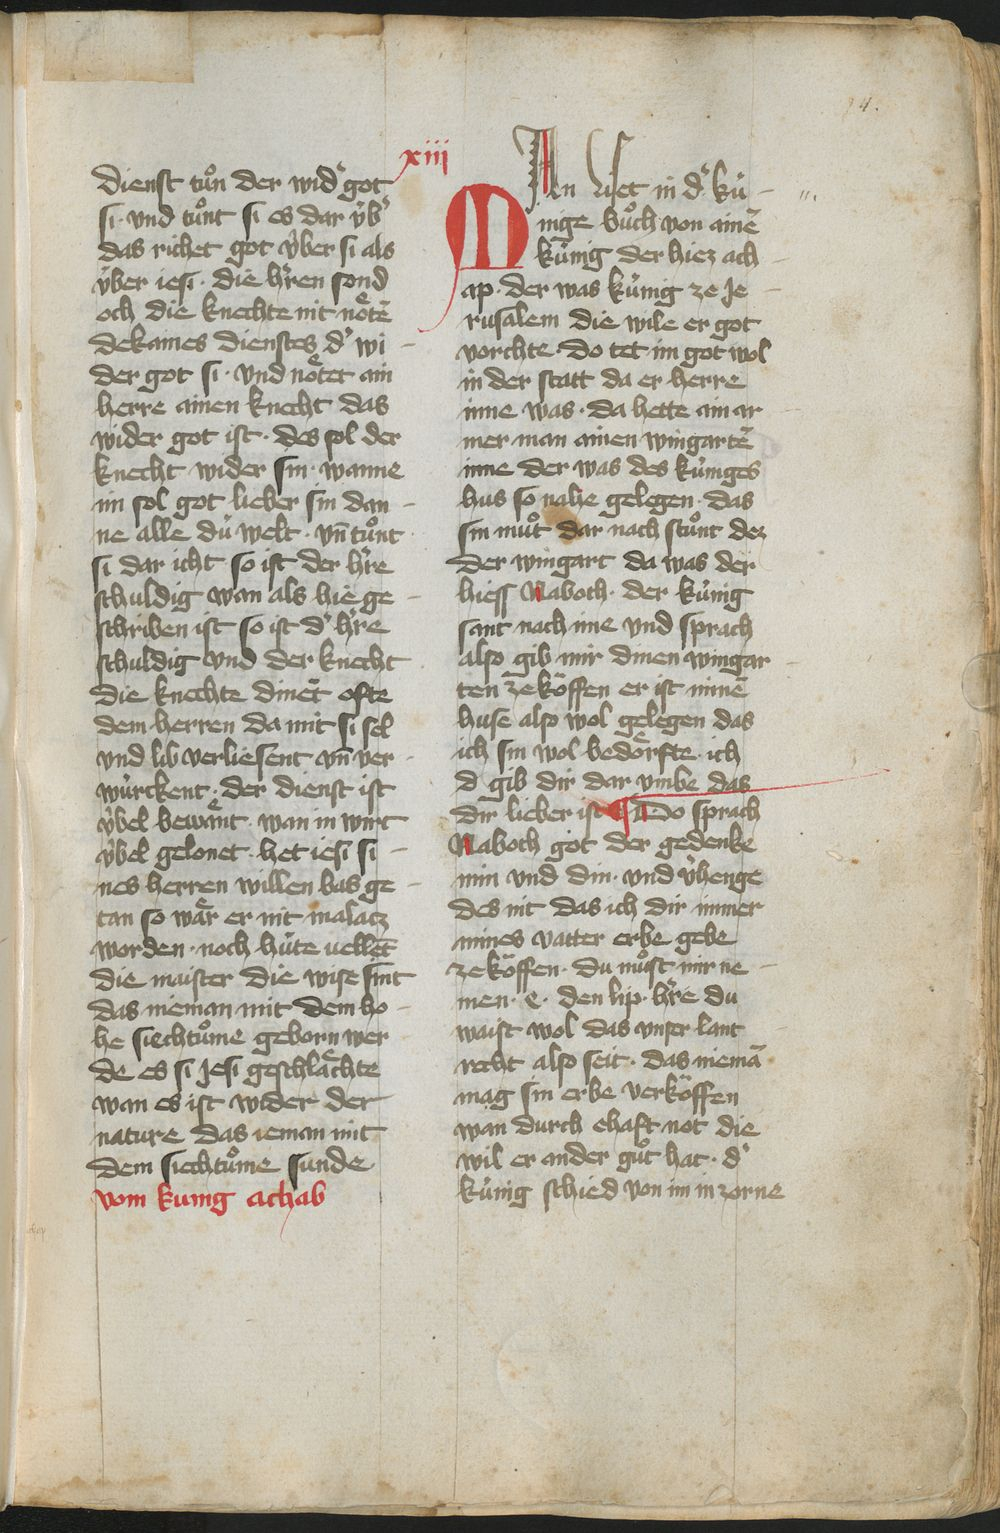 14.
xiii
dienst tuͦn der wid͛ got
si · vnd tuͦnt si es dar v̍b͛
das richet got v̍ber si als
v̍ber iesi · die h͛ren sond
och die knechte nit noͤtē
dekaines dienstes d͛ wi
der got si · vnd noͤtet ain
herre ainen knecht das
wider got ist · des sol der
knecht wider sin · wanne
im sol got lieber sin dan
ne alle du̍ welt · vn̄ tuͦnt
si dar icht so ist der h͛re
schuldig wan als hie ge
schriben ist so ist d͛ h͛re
schuldig vnd der knecht
die knechte dinēt ofte
dem herren da mit si sel
vnd lib verliesent vn̄ ver
wu̍rckent · der dienst ist
v̍bel bewaͤnt · wan in wirt
v̍bel gelonet · het iesi si
nes herren willen bas ge
tan so waͤr er nit malatz
worden · noch hu̍te vellēt
die maister die wise sint
das nieman mit dem ho
he siechtuͦme geborn wer
de es si Jesi geschlaͤchte
wan es ist wider der
nature das ieman mit
dem siechtuͦme sunde
vom kunig achab
MAn liset in d͛ ku̍
nige buͦch von ainē
ku̍nig der hiez ach
ap · der was ku̍nig ze Je
rusalem die wile er got
vorchte · do tet im got wol
in der statt da er herre
inne was · da hette ain ar
mer man ainen wingartē
inne der was des ku̍niges
hus so nahe gelegen · das
sin muͦt dar nach stuͦnt dez
der wingart da was der
hiess Naboth · der ku̍nig
sant nach ime vnd sprach
also gib mir dinen wingar
ten ze koͤffen er ist minē
huse also wol gelegen das
ich sin wol bedoͤrfte · ich
d gib dir dar vmbe das
dir lieber ist ¶ Do sprach
Naboth got der gedenke
min vnd din · vnd v̍henge
des nit das ich dir immer
mines vatter erbe gebe
ze koͤffen · du muͦst mir ne
men · e · den lip · h͛re du
waist wol das vnser lant
recht also seit · das niemā
mag sin erbe verkoͤffen
wan durch ehaft not die
wil er ander guͦt hat · d͛
ku̍nig schied von im in zorne